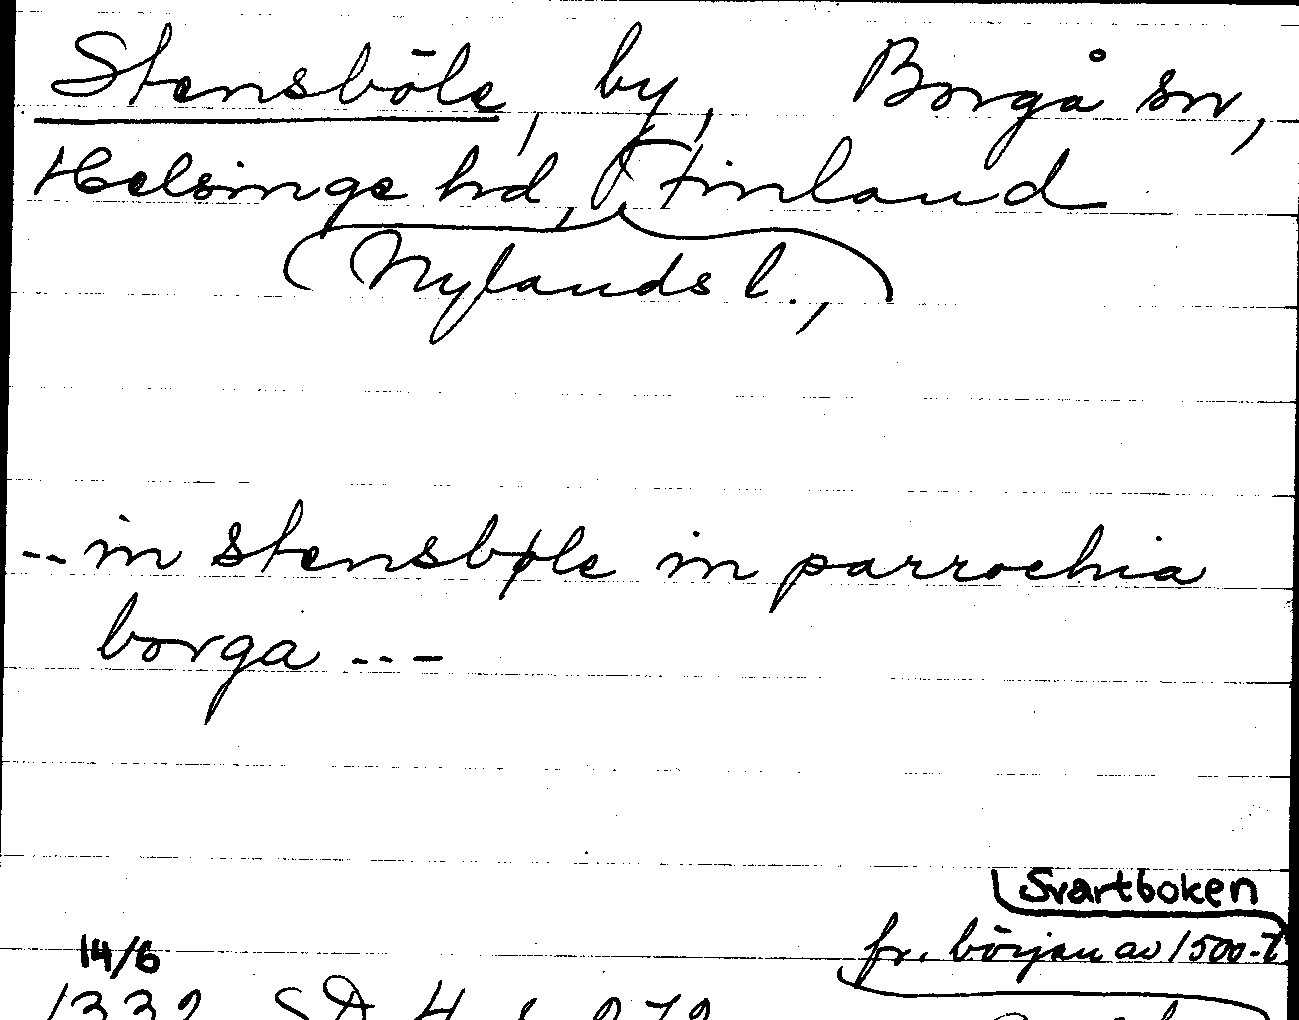 Stensböle, by, Borgå sn,
Helsinge hd, Finland
(Nylands l.,)
-- in stensbøle in parrochia
borga ---
Svartboken
fr. början av 1500-t
14/6
1332 SD 4 s